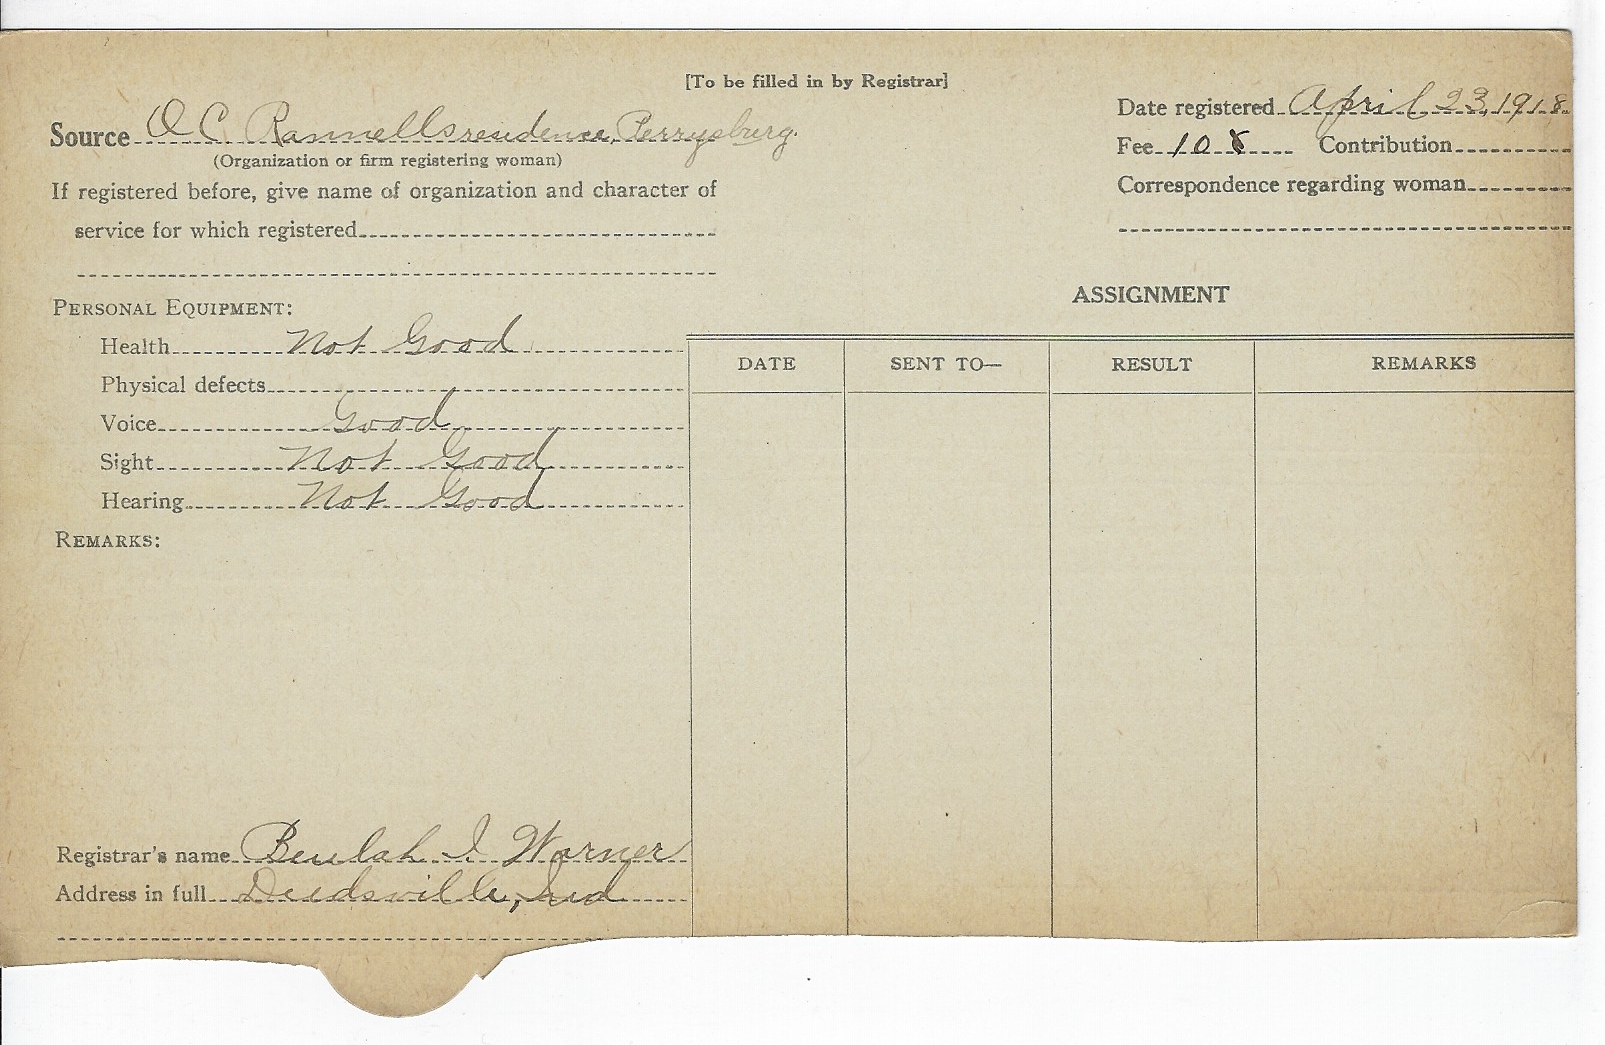 [To be filled in by Registrar]
Date registered April 23, 1918
Source O C Rannells residence, Perrysburg.
(Organization or firm registering woman)
Fee 10¢ Contribution
If registered before, give name of organization and character of
service for which registered
Correspondence regarding woman
PERSONAL EQUIPMENT:
Health Not Good
Physical defects
Voice Good
Sight Not Good
Hearing Not Good
REMARKS:
ASSIGNMENT
DATE SENT TO— RESULT REMARKS
Registrar's name Beulah I Warner
Address in full Deedsville, Ind